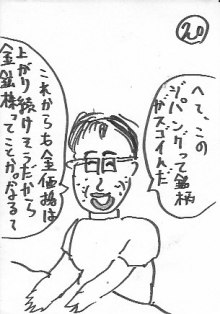 20
へぇ、この
ジパングって銘柄
がスゴイんだ
これからも金価格は
上がり続けそうだから
金鉱株ってことか。なるて